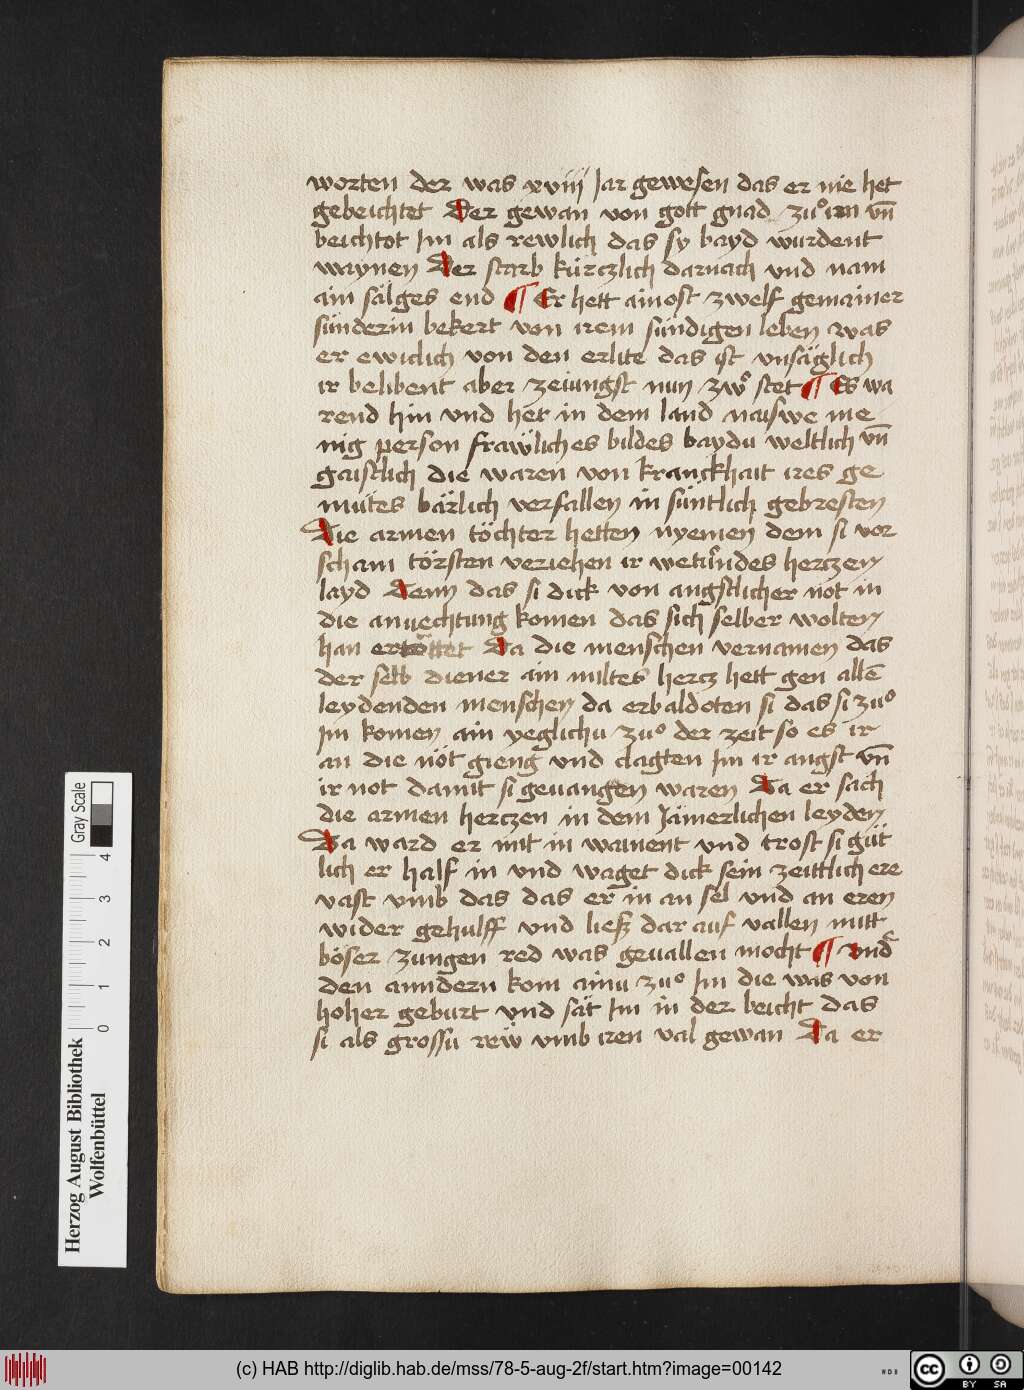 worten der was xviij Jar gewesen das er nie het
gebeichtet Der gewan von gott gnad zuͦ im vn̄
beichtot Im als rewlich das sy bayd wurdent
waynen Der starb kürczlich darnach vnd nam
ain sälges end ¶ Er hett ainost zwelf gemainer
sünderin bekert von irem sündigen leben was
er ewiclich von den erlite das ist vnsäglich
ir belibent aber zeiungst nun zwo stet ¶ Es wa
rend hin vnd her in dem land naiswe me
nig person frawliches bildes baydu weltlich vn̄
gaistlich die waren von kranckhait ires ge
mütes bärlich verfallen in süntlich gebresten
Die armen töchter hetten nyemen dem si vor
scham törsten veriehen ir wetundes herczen
layd Denn das si dick von angstlicher not in
die anuechtung komen das sich selber wolten
han ertöttet Da die menschen vernamen das
der selb diener ain miltes hercz hett gen allē
leydenden menschen da erbaldoten si das si zuͦ
Im komen ain yeglichu zuͦ der zeit so es ir
an die nöt gieng vnd clagten Im ir angst vn̄
ir not damit si geuangen waren Da er sach
die armen herczen in dem Jämerlichen leyden
Da ward er mit in wainent vnd trost si güt
lich er half in vnd waget dick sein zeittlich ere
vast vmb das das er in an sel vnd an eren
wider gehulff vnd ließ dar auf vallen mitt
böser zungen red was geuallen mocht ¶ vnd͛
den anndern kom ainu zuͦ Im die was von
hoher geburt vnd sät Im in der beicht das
si als grossu rew vmb iren val gewan Da er
Gray Scale
0 1 2 3 4
Herzog August Bibliothek
Wolfenbüttel
(c) HAB http://diglib.hab.de/mss/78-5-aug-2f/start.htm?image=00142
cc BY SA